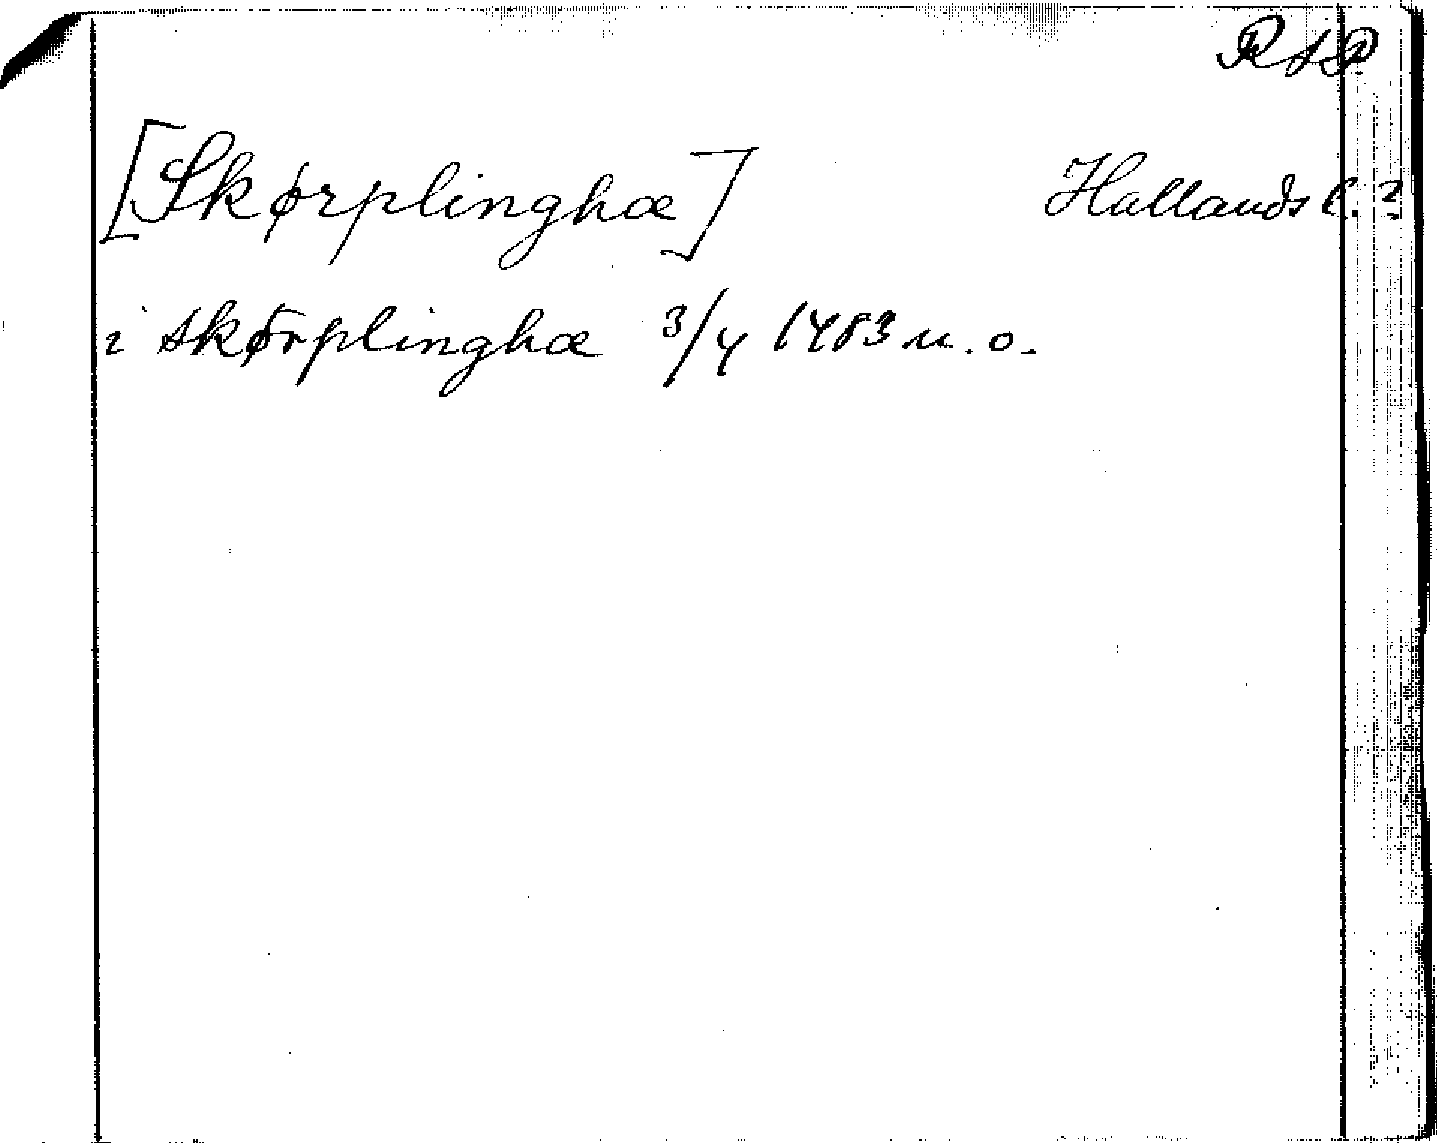 R A P
[Skørplinghæ] Hallands l. ?
i skørplinghæ 3/4 1483 u. o.